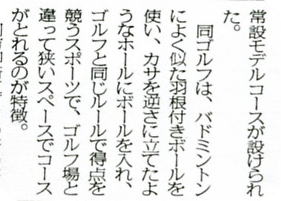 常設モデルコースが設けられ
た。
　同ゴルフは、バドミントン
によく似た羽根付きボールを
使い、カサを逆さに立てたよ
うなホールにボールを入れ、
ゴルフと同じルールで得点を
競うスポーツで、ゴルフ場と
違って狭いスペースでコース
がとれるのが特徴。